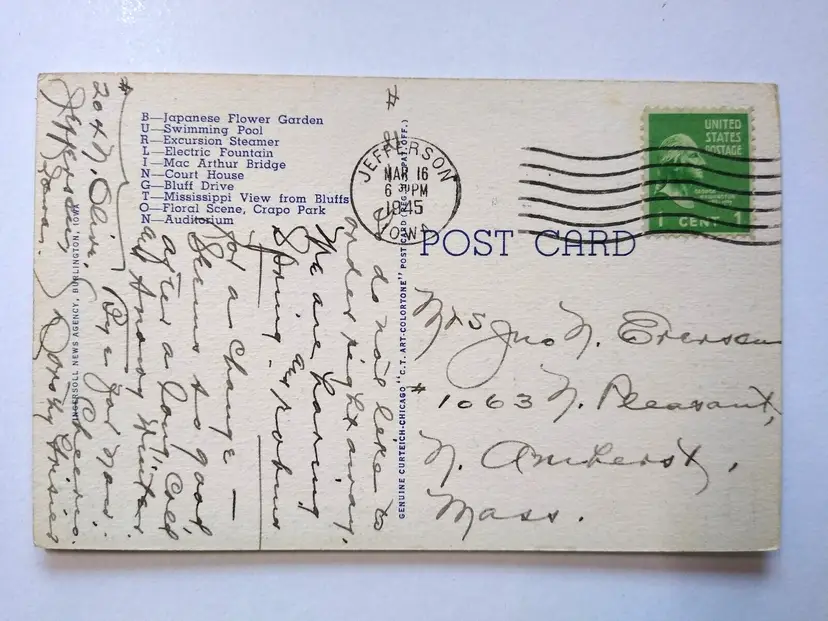 B—Japanese Flower Garden
U—Swimming Pool
R—Excursion Steamer
L—Electric Fountain
I—Mac Arthur Bridge
N—Court House
G—Bluff Drive
T—Mississippi View from Bluffs
O—Floral Scene, Crapo Park
N—Auditorium
INGERSOLL NEWS AGENCY, BURLINGTON, IOWA
GENUINE CURTEICH-CHICAGO "C.T. ART-COLORTONE" POST CARD (REG. U.S. PAT. OFF.)
JEFFERSON
MAR 16
6 PM
1945
IOWA
UNITED
STATES
POSTAGE
1 CENT 1
POST CARD
Mrs Jno N.
# 1063 N. Pleasant,
N. Amherst,
Mass.
#2
I do not like to
order right away.
We are having
Spring and robins
for a change —
Seems so good
after a long, cold
and snowy winter
Bye for now.
Cheerio.
Dorothy
# 204 N. Olive,
Jefferson,
Iowa.